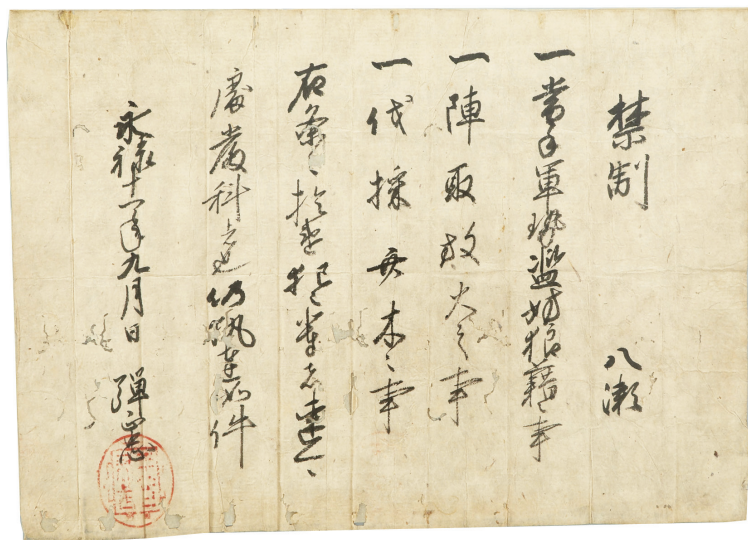 禁制　八瀬
一當手軍勢濫妨狼藉事
一陣取放火之事
一伐採竹木之事
右条々於違犯輩者速可
處嚴科者也仍執達如件
永禄十一年九月日　弾正忠